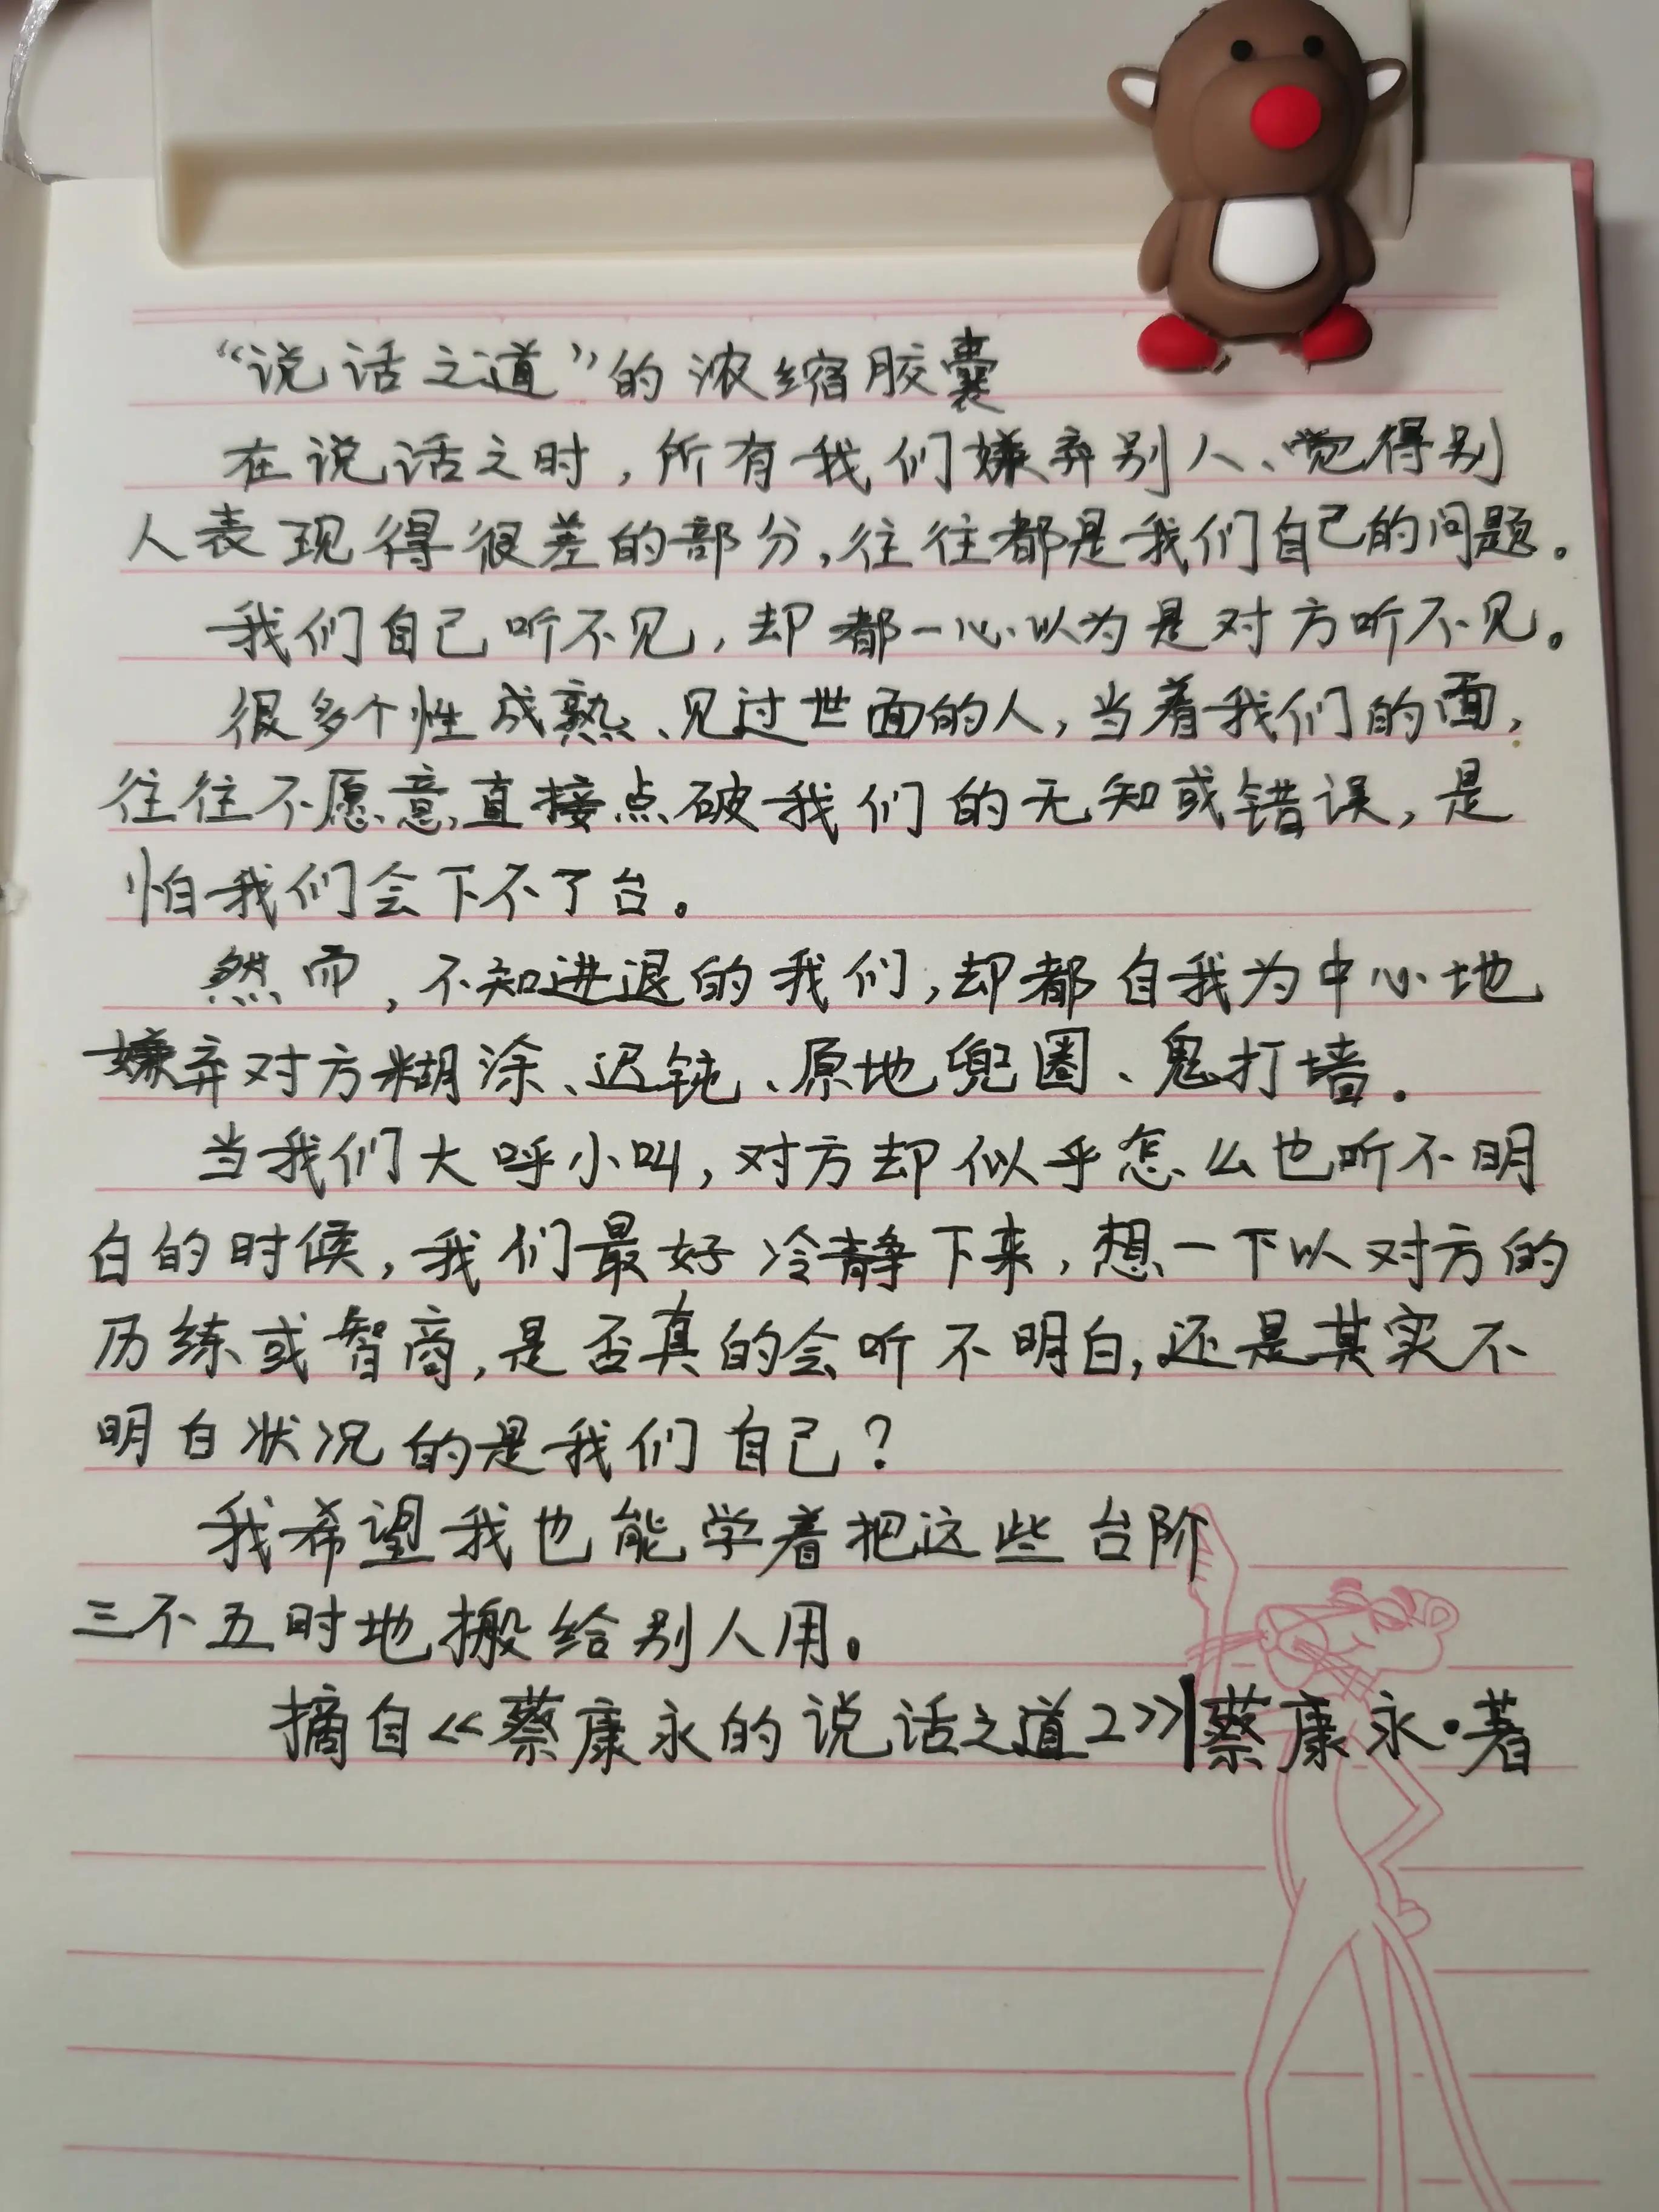 “说话之道”的浓缩胶囊
在说话之时，所有我们嫌弃别人、觉得别
人表现得很差的部分，往往都是我们自己的问题。
我们自己听不见，却都一心以为是对方听不见。
很多个性成熟、见过世面的人，当着我们的面，
往往不愿意直接点破我们的无知或错误，是
怕我们会下不了台。
然而，不知进退的我们，却都自我为中心地
嫌弃对方糊涂、迟钝、原地兜圈、鬼打墙。
当我们大呼小叫，对方却似乎怎么也听不明
白的时候，我们最好冷静下来，想一下以对方的
历练或智商，是否真的会听不明白，还是其实不
明白状况的是我们自己？
我希望我也能学着把这些台阶
三不五时地搬给别人用。
摘自《蔡康永的说话之道2》|蔡康永·著